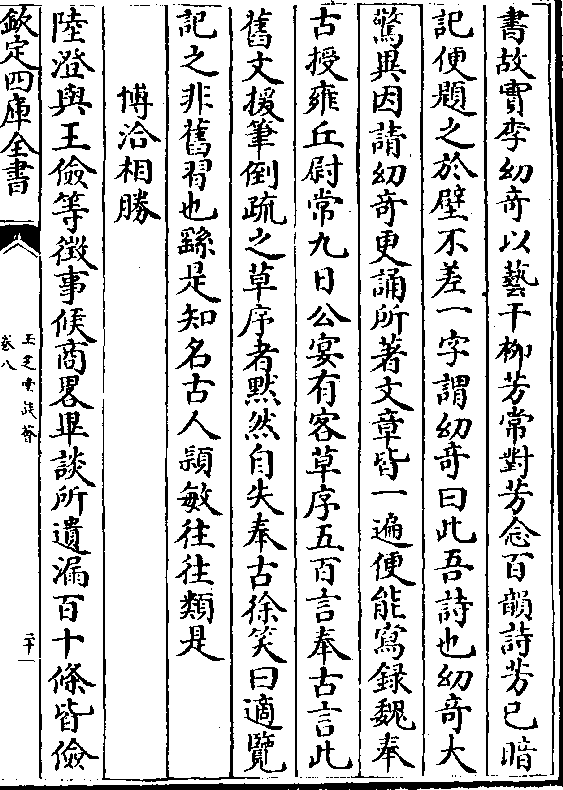 書故實李幼竒以藝干柳芳常對芳念百韻詩芳已暗
記便題之於壁不差一字謂幼竒曰此吾詩也幼竒大
驚異因請幼竒更誦所著文章皆一遍便能寫錄魏奉
古授雍丘尉常九日公宴有客草序五百言奉古言此
舊文援筆倒疏之草序者黙然自失奉古徐笑曰適覽
記之非舊習也繇是知名古人頴敏往往類是
博洽相勝
陸澄與王儉等徵事候商畧畢談所遺漏百十條皆儉
欽定四庫全書
玉芝堂談薈
卷八
二十一